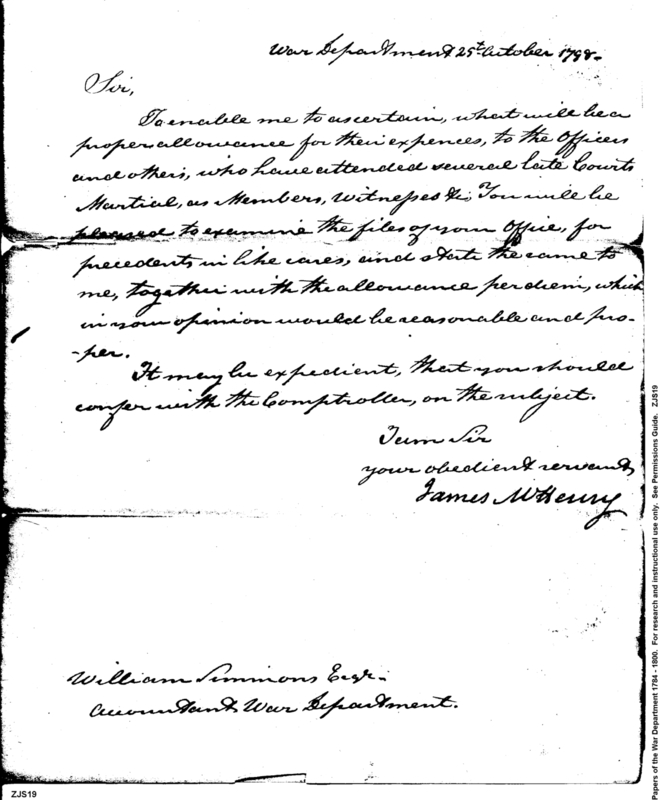 War Department 25th October 1798.
Sir,
To enable me to ascertain, what will be a
proper allowance for their expences, to the Officers
and others, who have attended several late Courts
Martial, as Members, Witnesses &c, You will be
pleased to examine the files of your Office, for
precedents in like cases, and state the same to
me, together with the allowance per diem, which
in your opinion would be reasonable and pro-
-per.
It may be expedient, that you should
confer with the Comptroller, on the subject.
I am Sir
your obedient servant
James McHenry
William Simmons Esqr.
Accountant War Department.
ZJS19
Papers of the War Department 1784 - 1800. For research and instructional use only. See Permissions Guide. ZJS19